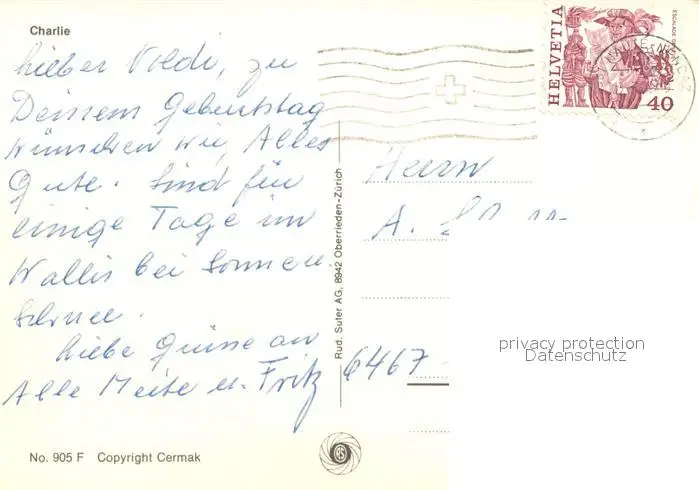 Charlie
HELVETIA
40
Lieber Noldi, zu
Deinem Geburtstag
wünschen wir Alles
Gute. Sind für
einige Tage im
Wallis bei Sonne u.
Schnee.
Liebe Grüsse an
Alle Meite u. Fritz
Herrn
A.
6467
Rud. Suter AG, 8942 Oberrieden-Zürich
privacy protection
Datenschutz
No. 905 F Copyright Cermak